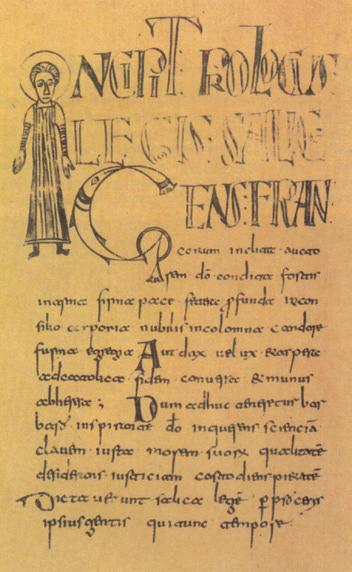 INCIPIT PROLOGUS
LEGIS SALICE
GENS FRAN
corum inclita aucto
rem dō condita fortis
in arma firma pace ꝓfunda incon
silio corporea nobilis incolomna candore
forma egregia Audax uelox et aspera
adcatholica fidem conuersa & inmunis
abherese; Dum adhuc teneretur bar
inspirante dō inquerens sciencia
clauem iuxta morem suorū qualitatē
desiderans iusticiam costodiens pietatē
Dictauerunt salica legē ꝑ
ipsius gentis qui tunc tempore